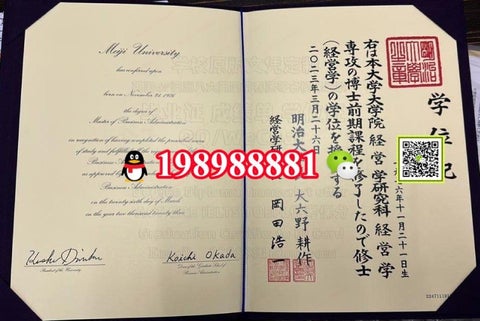 Meiji University
has conferred upon
born on November 21, 1976
the degree of
Master of Business Administration
in recognition of having completed the prescribed course
Business Administration
on the twenty sixth day of March
in the year two thousand twenty three
President of the University
Koichi Okada
Dean of the Graduate School of
Business Administration
198988881
学位記
六年十一月二十一日生
右は本大学大学院経営学研究科経営学
専攻の博士前期課程を修了したので修士
(経営学)の学位を授
する
二〇二三年三月二十六日
明治大
大六野耕作
経営学研
岡田浩一